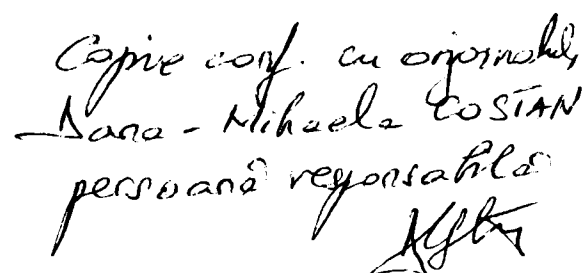 Copie conf. cu originalul,
Dana - Mihaela COSTAN
persoană responsabilă